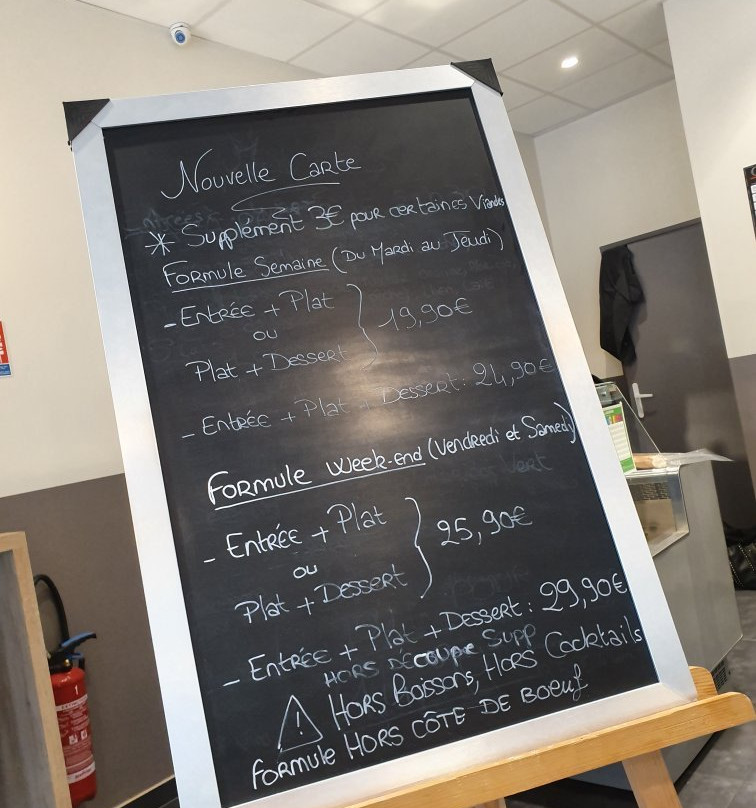 Nouvelle Carte
* Supplément 3€ pour certaines Viandes
Formule Semaine (Du Mardi au Jeudi)
- Entrée + Plat
ou
Plat + Dessert } 19,90€
- Entrée + Plat + Dessert : 24,90€
Formule Week-end (Vendredi et Samedi)
- Entrée + Plat
ou
Plat + Dessert } 25,90€
- Entrée + Plat + Dessert : 29,90€
HORS DÉCOUPE SUPP
⚠ Hors Boissons, Hors Cocktails
Formule HORS CÔTE DE BOEUF